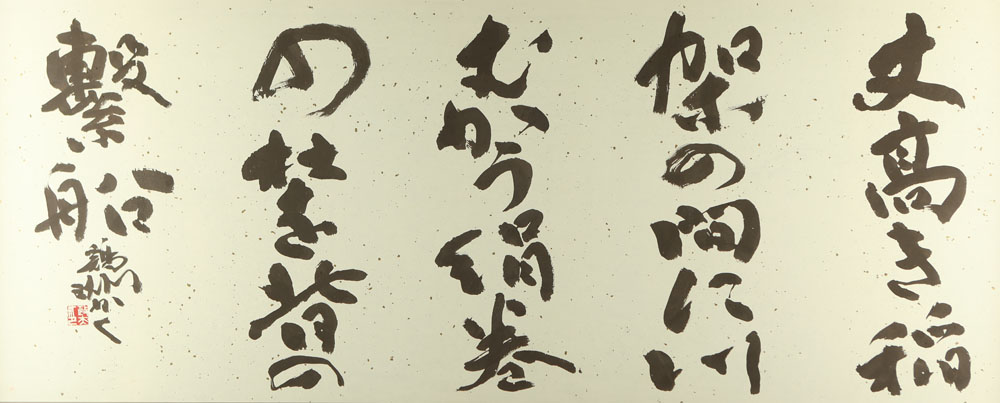 丈高き稲
架の間に川
むかう絹巻
の杜を背の
繋船